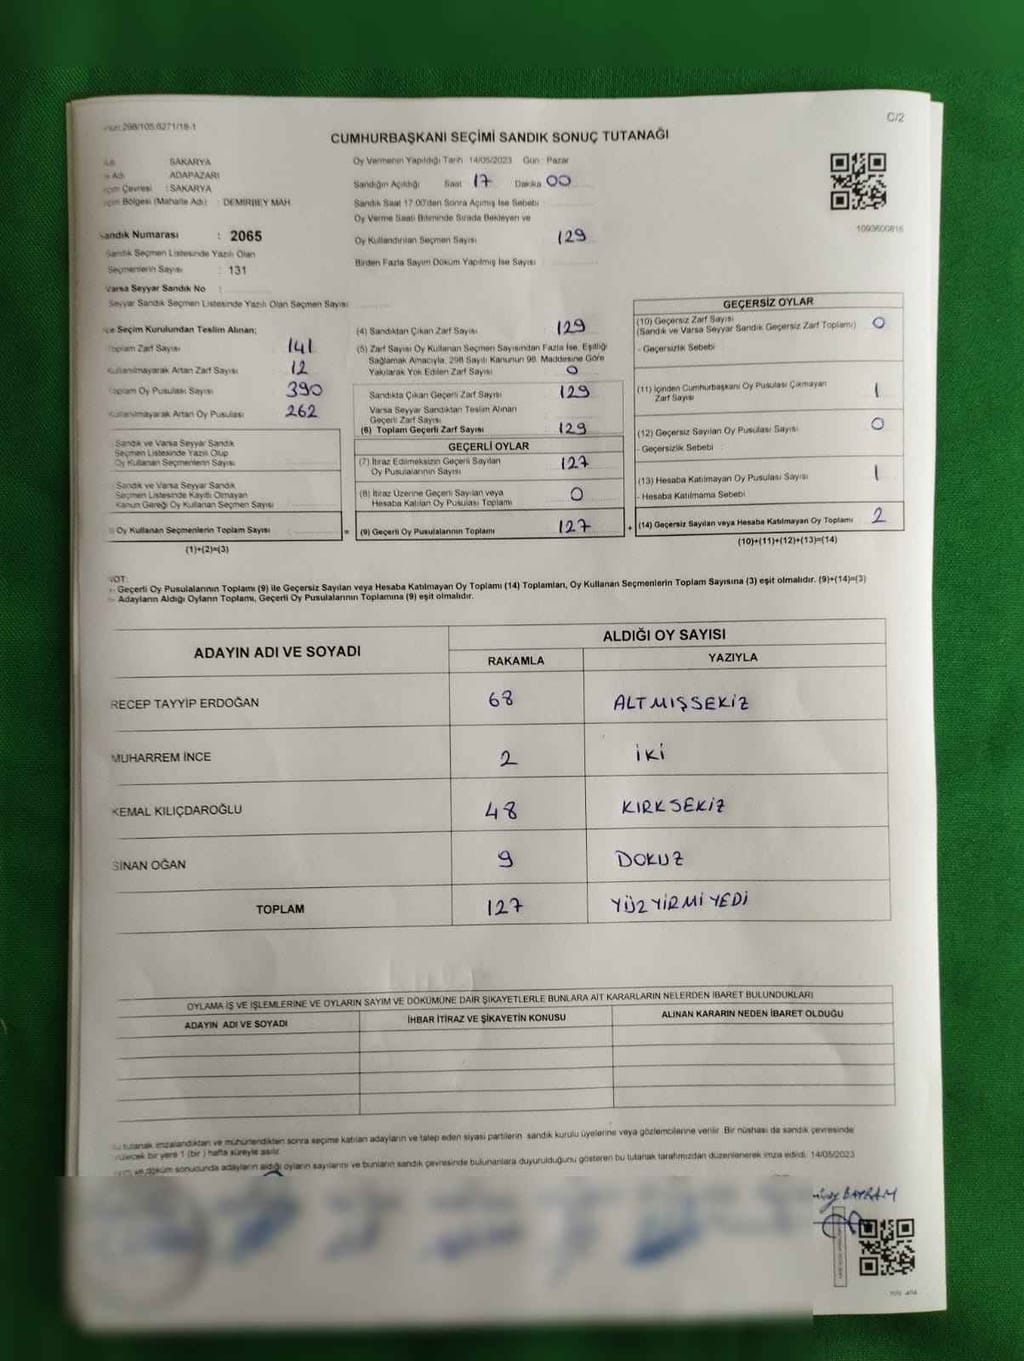 298/105.6271/18-1
C/2
CUMHURBAŞKANI SEÇİMİ SANDIK SONUÇ TUTANAĞI
SAKARYA
Adı ADAPAZARI
Çevresi : SAKARYA
Bölgesi (Mahalle Adı) : DEMİRBEY MAH
Sandık Numarası : 2065
Sandık Seçmen Listesinde Yazılı Olan
Seçmenlerin Sayısı : 131
Varsa Seyyar Sandık No :
Seyyar Sandık Seçmen Listesinde Yazılı Olan Seçmen Sayısı
Oy Vermenin Yapıldığı Tarih 14/05/2023 Gün : Pazar
Sandığın Açıldığı Saat 17 Dakika 00
Sandık Saat 17.00'den Sonra Açılmış İse Sebebi
Oy Verme Saati Bitiminde Sırada Bekleyen ve
Oy Kullandırılan Seçmen Sayısı 129
Birden Fazla Sayım Döküm Yapılmış İse Sayısı
1093600816
İlçe Seçim Kurulundan Teslim Alınan;
Toplam Zarf Sayısı 141
Kullanılmayarak Artan Zarf Sayısı 12
Toplam Oy Pusulası Sayısı 390
Kullanılmayarak Artan Oy Pusulası 262
Sandık ve Varsa Seyyar Sandık
Seçmen Listesinde Yazılı Olup
Oy Kullanan Seçmenlerin Sayısı
Sandık ve Varsa Seyyar Sandık
Seçmen Listesinde Kayıtlı Olmayan
Kanun Gereği Oy Kullanan Seçmen Sayısı
Oy Kullanan Seçmenlerin Toplam Sayısı =
(1)+(2)=(3)
(4) Sandıktan Çıkan Zarf Sayısı 129
(5) Zarf Sayısı Oy Kullanan Seçmen Sayısından Fazla İse, Eşitliği
Sağlamak Amacıyla, 298 Sayılı Kanunun 98. Maddesine Göre
Yakılarak Yok Edilen Zarf Sayısı 0
Sandıkta Çıkan Geçerli Zarf Sayısı 129
Varsa Seyyar Sandıktan Teslim Alınan
Geçerli Zarf Sayısı
(6) Toplam Geçerli Zarf Sayısı 129
GEÇERLİ OYLAR
(7) İtiraz Edilmeksizin Geçerli Sayılan
Oy Pusulalarının Sayısı 127
(8) İtiraz Üzerine Geçerli Sayılan veya
Hesaba Katılan Oy Pusulası Toplamı 0
(9) Geçerli Oy Pusulalarının Toplamı 127 +
GEÇERSİZ OYLAR
(10) Geçersiz Zarf Sayısı
(Sandık ve Varsa Seyyar Sandık Geçersiz Zarf Toplamı) 0
- Geçersizlik Sebebi
(11) İçinden Cumhurbaşkanı Oy Pusulası Çıkmayan
Zarf Sayısı 1
(12) Geçersiz Sayılan Oy Pusulası Sayısı 0
- Geçersizlik Sebebi :
(13) Hesaba Katılmayan Oy Pusulası Sayısı 1
- Hesaba Katılmama Sebebi
(14) Geçersiz Sayılan veya Hesaba Katılmayan Oy Toplamı 2
(10)+(11)+(12)+(13)=(14)
NOT:
- Geçerli Oy Pusulalarının Toplamı (9) ile Geçersiz Sayılan veya Hesaba Katılmayan Oy Toplamı (14) Toplamları, Oy Kullanan Seçmenlerin Toplam Sayısına (3) eşit olmalıdır. (9)+(14)=(3)
- Adayların Aldığı Oyların Toplamı, Geçerli Oy Pusulalarının Toplamına (9) eşit olmalıdır.
ADAYIN ADI VE SOYADI
ALDIĞI OY SAYISI
RAKAMLA YAZIYLA
RECEP TAYYİP ERDOĞAN 68 ALTMIŞSEKİZ
MUHARREM İNCE 2 İKİ
KEMAL KILIÇDAROĞLU 48 KIRKSEKİZ
SİNAN OĞAN 9 DOKUZ
TOPLAM 127 YÜZYİRMİYEDİ
OYLAMA İŞ VE İŞLEMLERİNE VE OYLARIN SAYIM VE DÖKÜMÜNE DAİR ŞİKAYETLERLE BUNLARA AİT KARARLARIN NELERDEN İBARET BULUNDUKLARI
ADAYIN ADI VE SOYADI İHBAR İTİRAZ VE ŞİKAYETİN KONUSU ALINAN KARARIN NEDEN İBARET OLDUĞU
tutanak imzalandıktan ve mühürlendikten sonra seçime katılan adayların ve talep eden siyasi partilerin sandık kurulu üyelerine veya gözlemcilerine verilir. Bir nüshası da sandık çevresinde
bir yere 1 (bir) hafta süreyle asılır.
ve döküm sonucunda adayların aldığı oyların sayılarını ve bunların sandık çevresinde bulunanlara duyurulduğunu gösteren bu tutanak tarafımızdan düzenlenerek imza edildi. 14/05/2023
BAYRAM